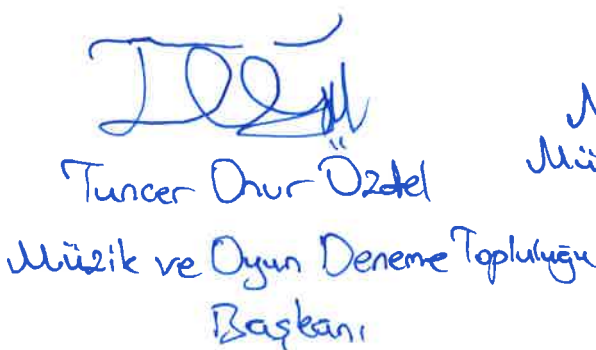 Tuncer Onur Özdel
Mü
Müzik ve Oyun Deneme Topluluğu
Başkanı